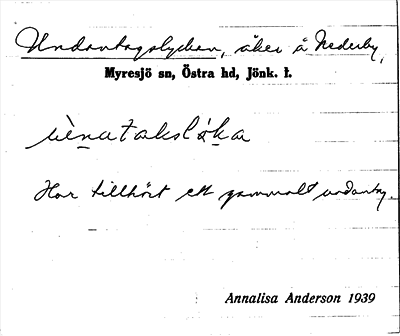 Undantagslyckan, åker å Nederby,
Myresjö sn, Östra hd, Jönk. l.
Har tillhört ett gammalt undantag.
Annalisa Anderson 1939